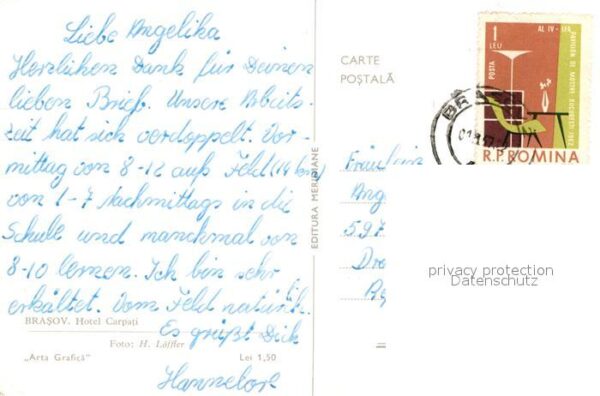 Liebe Angelika
Herzlichen Dank für Deinen
lieben Brief. Unsere Arbeits-
zeit hat sich verdoppelt. Vor
mittag von 8-12 aufs Feld (14 km)
von 1-7 Nachmittags in die
Schule und manchmal von
8-10 lernen. Ich bin sehr
erkältet. Vom Feld natürlich.
Es grüßt Dich
Hannelore
BRAȘOV. Hotel Carpați
Foto: H. Löffler
„Arta Grafică” Lei 1,50
EDITURA MERIDIANE
CARTE
POȘTALĂ
1
LEU
POSTA
AL IV-LEA
PAVILION DE MOSTRE BUCUREȘTI
R.P.ROMINA
Fräulein
Ang
597
Dre
privacy protection
Datenschutz